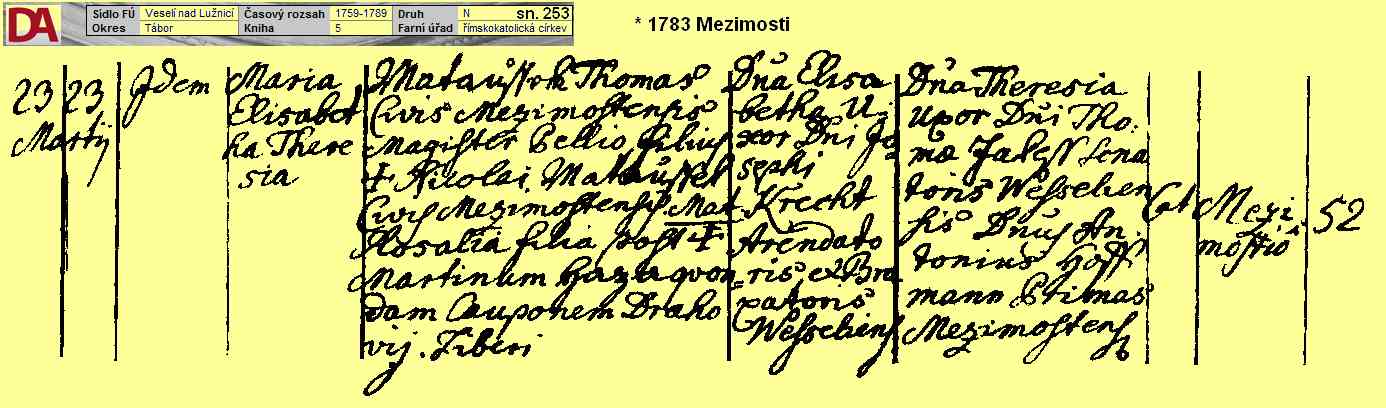 DA Sídlo FÚ Veselí nad Lužnicí Časový rozsah 1759-1789 Druh N sn. 253
Okres Tábor Kniha 5 Farní úřad římskokatolická církev
* 1783 Mezimosti
23 23
Martij
Jdem
Maria
Elisabet
ha There
sia
Thomas
Civis Mezimostensis
Magister Pellio filius
+ Nicolai
Civis Mezimostensis. Mat.
Rosalia filia post +
Martinum Haza quon=
dam Cauponem Draho
vij. Liberi
Dña Elisa
betha U
xor Dni Jo=
sephi
Krecht
Arendato
ris et Bra
xatoris
Wesseliens
Dña Theresia
uxor Dñi Tho:
mæ Sena
toris Wesselien
sis Dnus An.
tonius Hoff
mann Primas
Mezimostens
Cat
Mezi
mostio
52